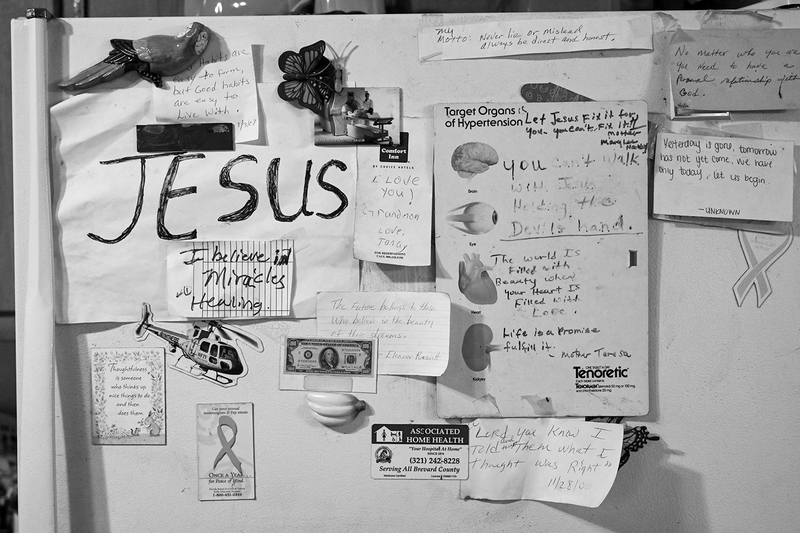 My
Motto: Never lie, or mislead
always be direct and honest.
Habits are
easy to form,
but Good habits
are easy to
Live With.
No matter who you are
you need to have a
Personal relationship with
God.
JESUS
I believe in
Miracles
Healing.
Comfort
Inn
BY CHOICE HOTELS
I Love
you!
Grandmom
Love,
FOR RESERVATIONS
Target Organs
of Hypertension
Let Jesus Fix it for
You, you can't Fix it!!
mother
You can't Walk
With Jesus
Holding the
Devil's hand.
The World Is
Filled with
Beauty when
your Heart Is
Filled with
Love.
Life is a Promise
fulfill it.
- Mother Teresa
Brain
Eye
Heart
Kidney
Tenoretic
Yesterday is gone, tomorrow
has not yet come, we have
only today, let us begin.
- UNKNOWN
The Future belongs to those
Who believe in the beauty
of their dreams.
- Eleanor Roosevelt
Thoughtfulness
is someone
who thinks up
nice things to do
and then
does them.
Get your annual
mammogram & Pap smear
ONCE A YEAR
for Peace of Mind
100
ASSOCIATED
HOME HEALTH
"Your Hospital At Home"
(321) 242-8228
Serving All Brevard County
Lord you Know I
Told them What I
thought was Right